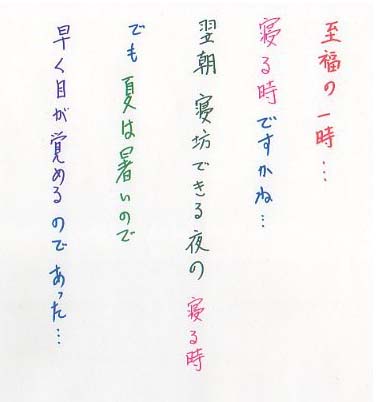 至福の一時…
寝る時ですかね…
翌朝 寝坊できる夜の 寝る時
でも 夏は暑いので
早く目が覚めるのであった…